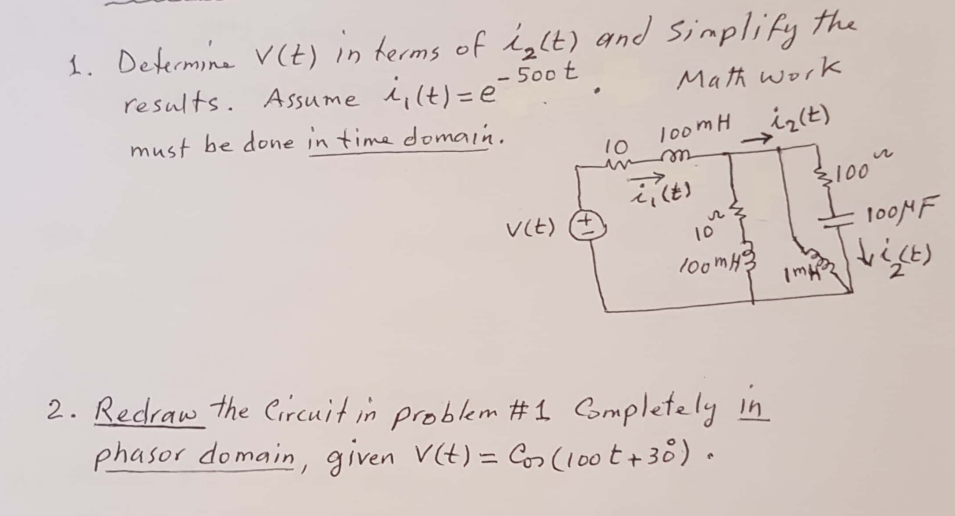 1. Determine V(t) in terms of i₂(t) and simplify the
results. Assume i₁(t) = e^-500t. Math work
must be done in time domain.
10 100mH i₂(t)
i₁(t)
100Ω
V(t) + -
10Ω
100μF
100mH
1mH
i₂(t)
2. Redraw the Circuit in problem #1 Completely in
phasor domain, given V(t) = Cos(100t+30°).